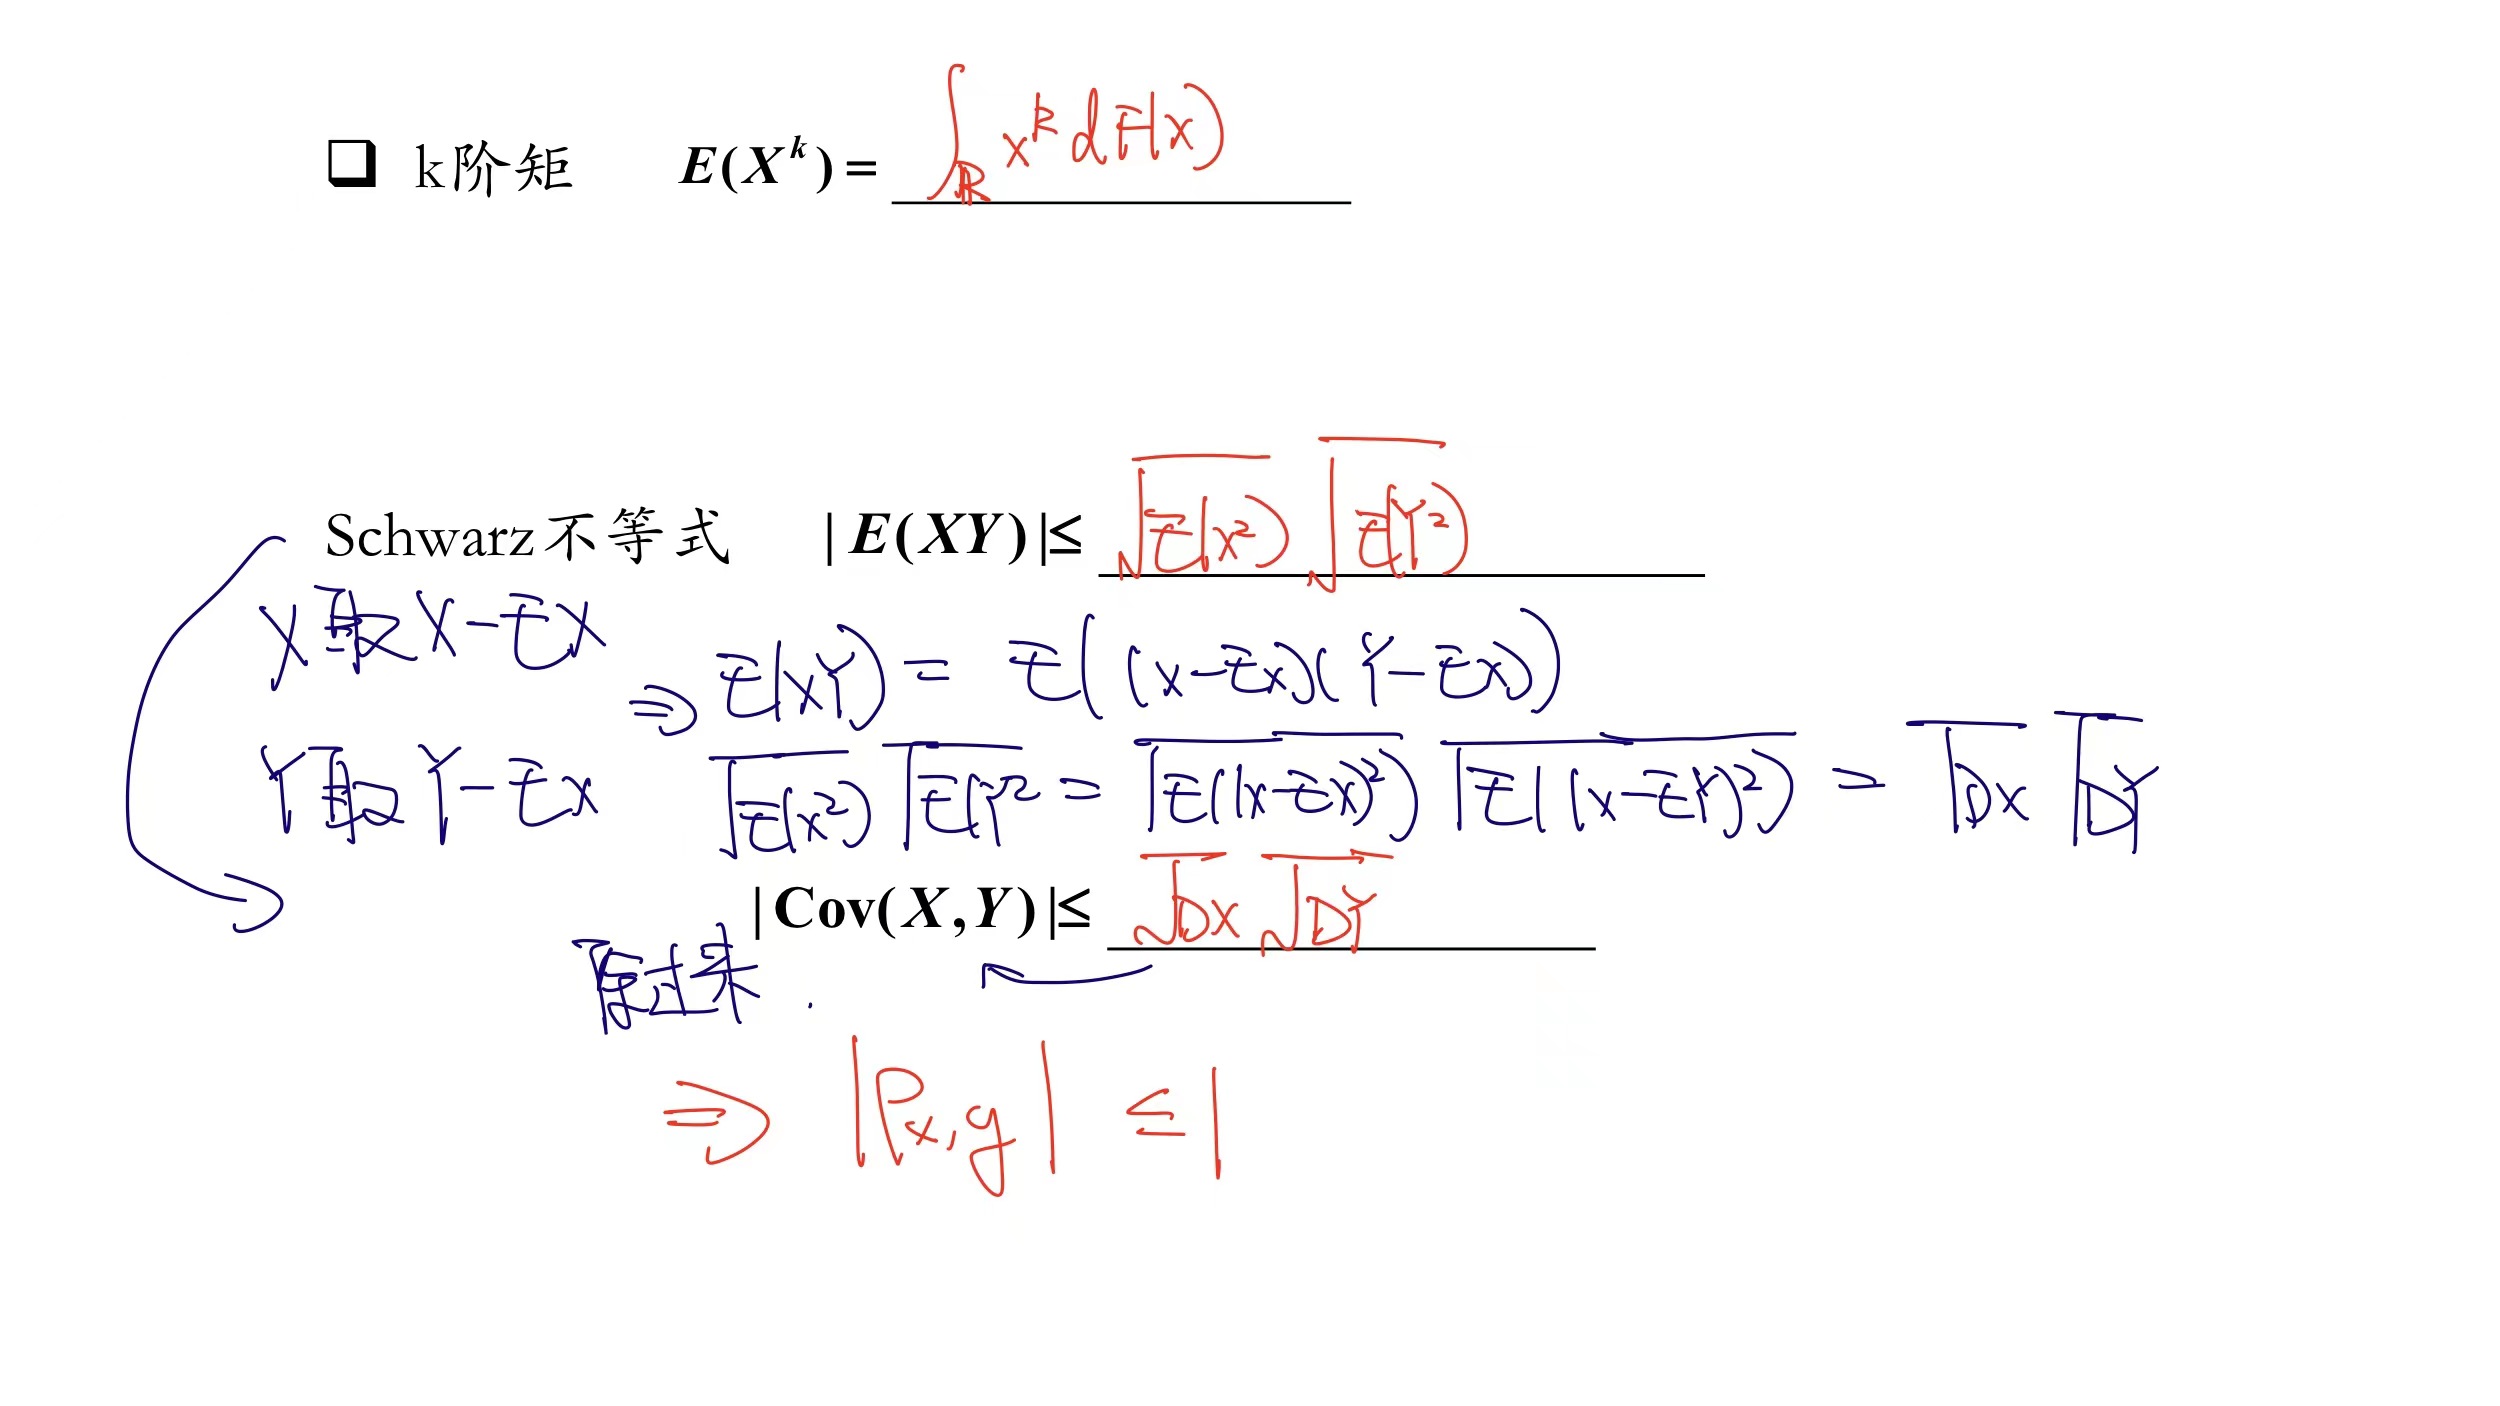 ❑ k阶矩 E(X^k) = ∫_R x^k dF(x)
Schwarz不等式 | E(XY) |≤ √E(x²) √E(Y²)
X取 X-EX
⇒ E(XY) = E((X-EX)(Y-EX))
Y取 Y-EX
√E(X²) √E(Y² = √E((X-EX)²) √E((X-EX)²) = √DX √DY
| Cov(X,Y) |≤ √DX √DY
⇒ |ρ_{x,y}| ≤ 1